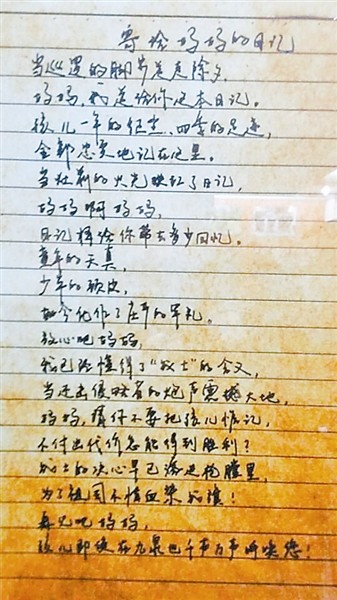 寄给妈妈的日记
当巡逻的脚步送走除夕，
妈妈，我送给你这本日记。
孩儿一年的纪念、四季的足迹，
全部忠实地记在这里。
当灶前的火光映红了日记，
妈妈啊妈妈，
日记将给你带去多少回忆。
童年的天真，
少年的顽皮，
如今化作了庄严的军礼。
放心吧妈妈，
我已经懂得了“战士”的含义，
当还击侵略者的炮声震撼大地，
妈妈，请你不要把孩儿惦记，
不付出代价怎能得到胜利？
战士的决心早已溶进枪膛里，
为了祖国不惜血染战旗！
再见吧妈妈，
孩儿即使在九泉也千声百声呼唤您！